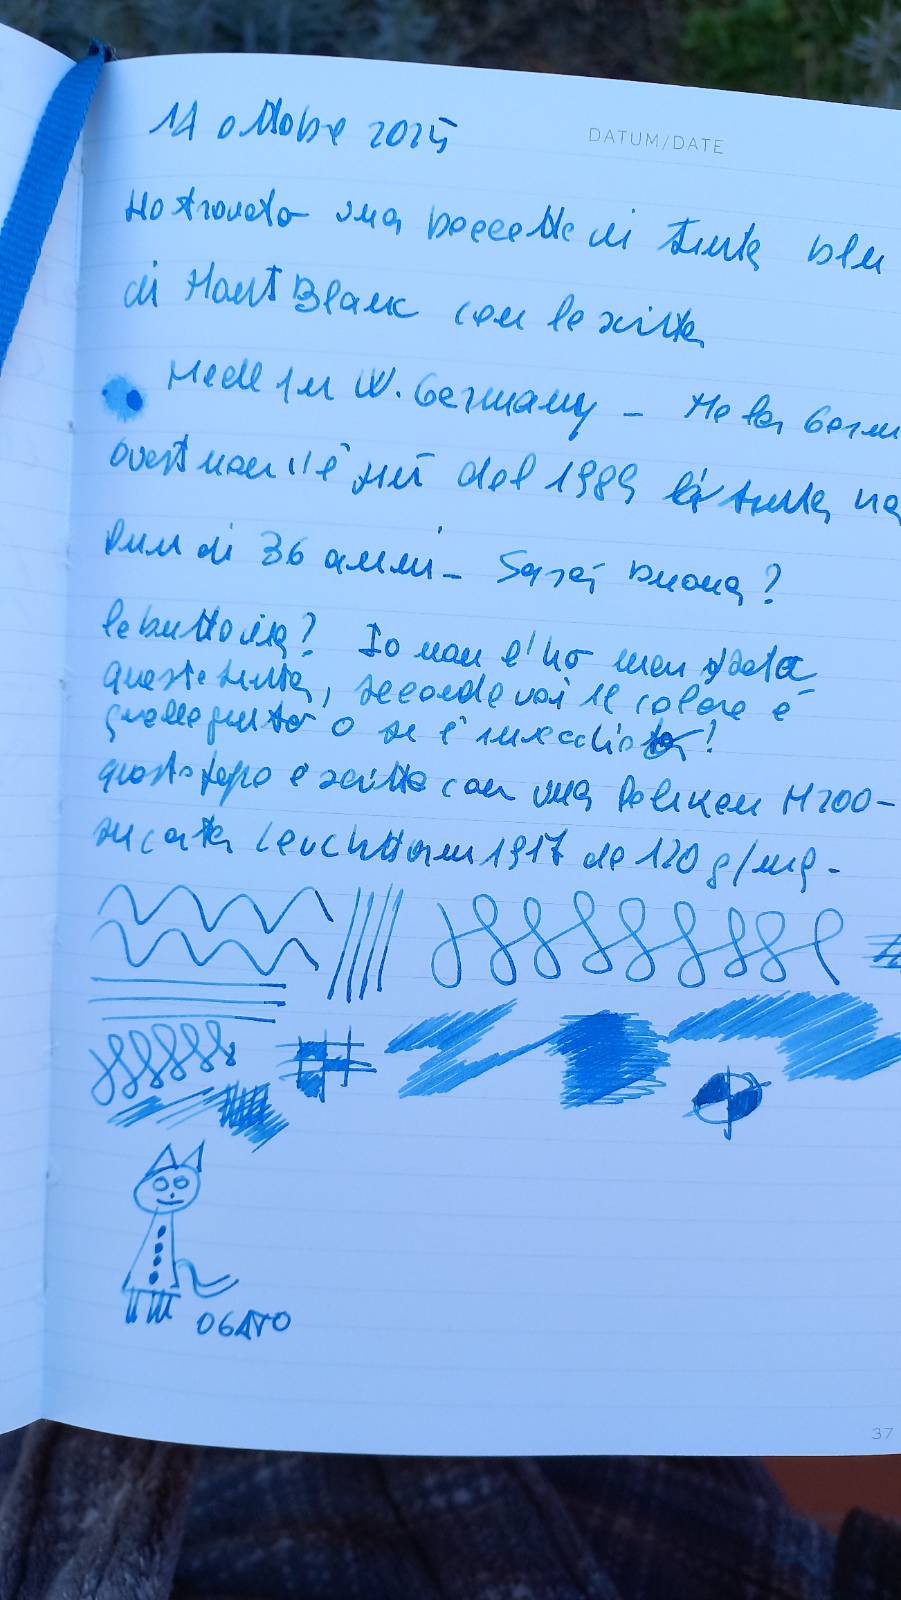 14 ottobre 2025
DATUM/DATE
Ho trovato una boccetta di tinta blu
di MontBlanc con la scritta
Made in W. Germany - Ma la Germ
ovest non c'è più dal 1989 la tinta ha
di 36 anni - Sarà buona?
la butto via? Io non l'ho mai usata
questa tinta, secondo voi il colore è
quello giusto o si è invecchiata!
questa topo è scritta con una Pelikan M200 -
su carta Leuchtturm 1917 da 120 g/mq -
OGATO
37